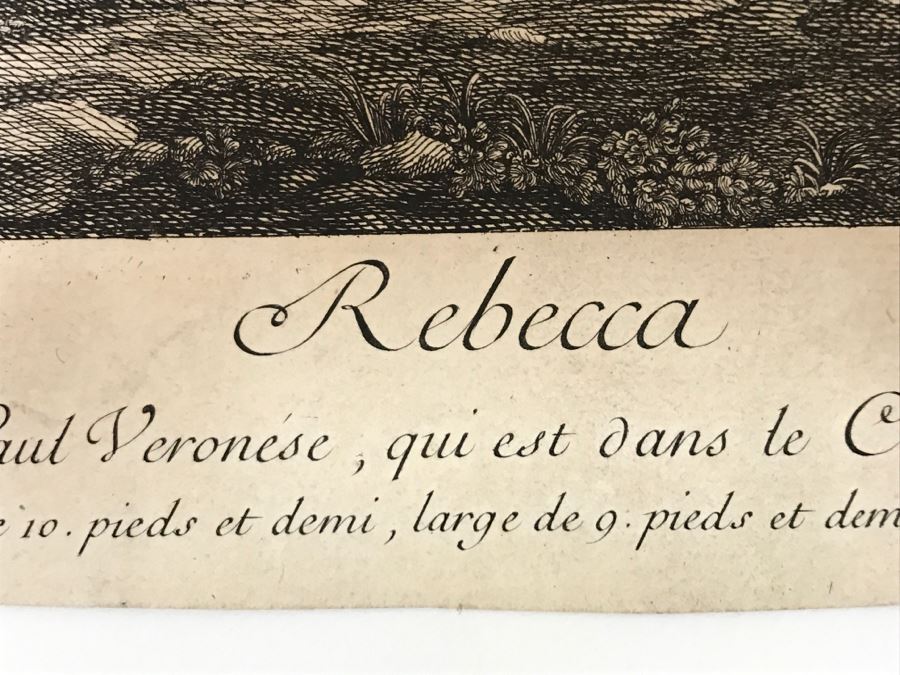 Rebecca
Paul Veronése, qui est dans le C
e 10. pieds et demi, large de 9. pieds et dem